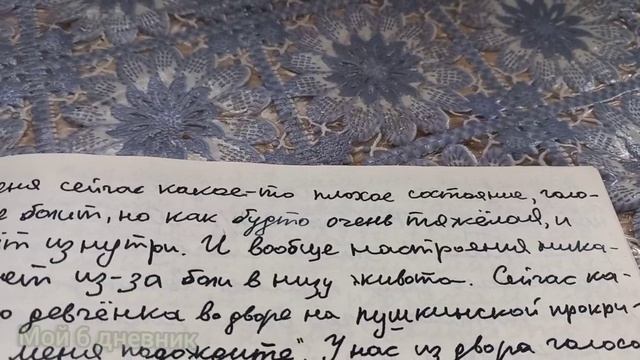 еня сейчас какое-то плохое состояние, голо-
е болит, но как будто очень тяжёлая, и
ит изнутри. И вообще настроения ника-
ает из-за боли в низу живота. Сейчас ка-
о девчёнка во дворе на пушкинской прокри-
меня подождите". У нас из двора голоса
Мой 6 дневник